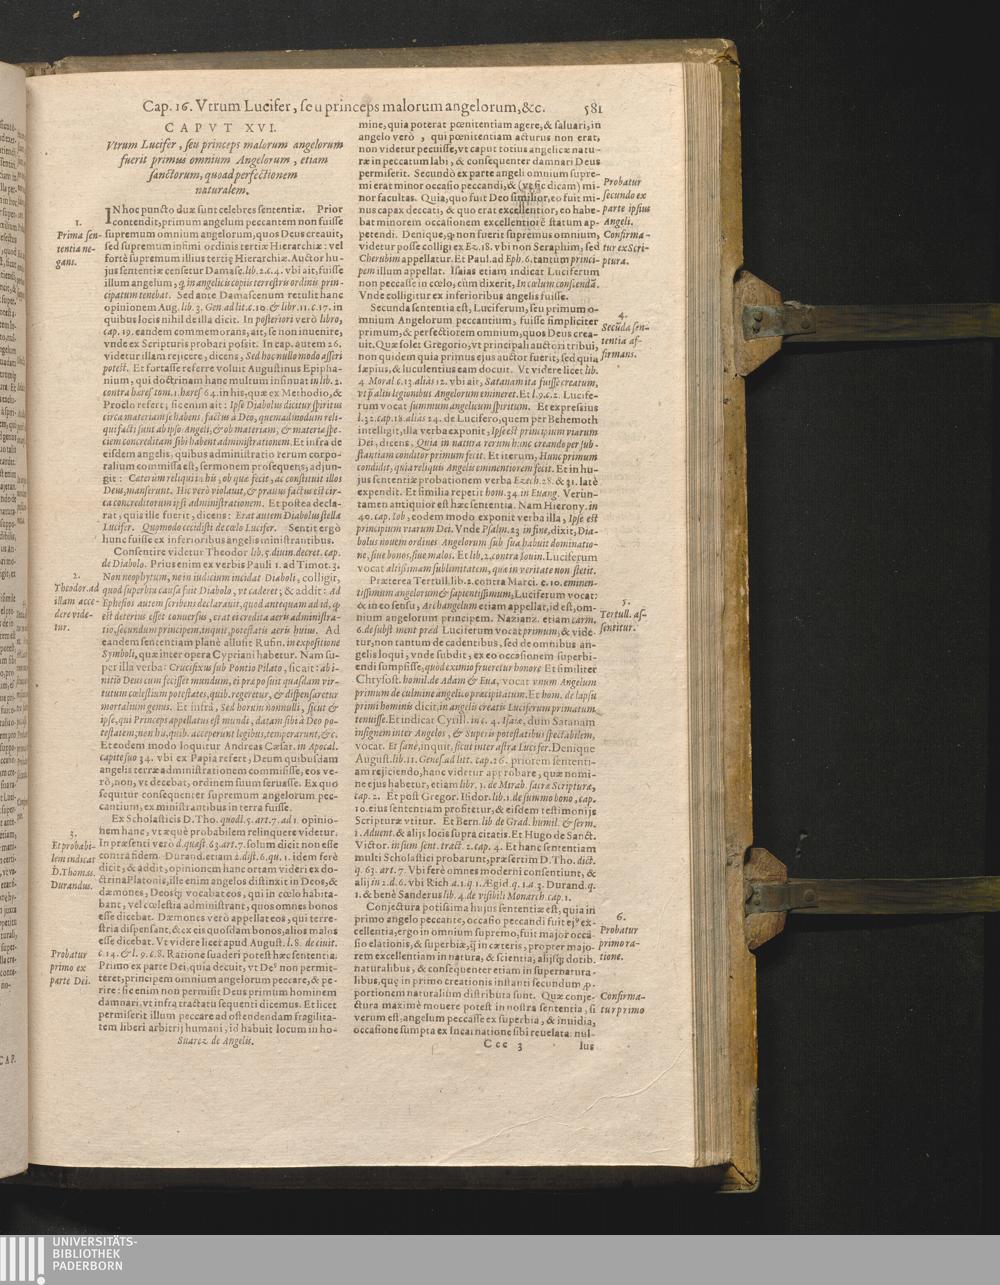 Cap. 16. Vtrum Lucifer, seu princeps malorum angelorum, &c. 581
CAPVT XVI.
Vtrum Lucifer, seu princeps malorum angelorum
fuerit primus omnium Angelorum, etiam
sanctorum, quoad perfectionem
naturalem.
1.
Prima sen-
tentia ne-
gans.
IN hoc puncto duæ sunt celebres sententiæ. Prior
contendit, primum angelum peccantem non fuisse
supremum omnium angelorum, quos Deus creauit,
sed supremum infimi ordinis tertiæ Hierarchiæ: vel
fortè supremum illius tertię Hierarchiæ. Auctor hu-
jus sententiæ censetur Damasc. lib. 2. c. 4. vbi ait, fuisse
illum angelum, q in angelicis copiis terrestris ordinis prin-
cipatum tenebat. Sed ante Damascenum retulit hanc
opinionem Aug. lib. 3. Gen. ad lit. c. 10. & libr. 11. c. 17. in
quibus locis nihil de illa dicit. In posteriori verò libro,
cap. 19. eandem commemorans, ait, se non inuenire,
vnde ex Scripturis probari possit. In cap. autem 26.
videtur illam rejicere, dicens, Sed hoc nullo modo asseri
potest. Et fortasse referre voluit Augustinus Epipha-
nium, qui doctrinam hanc multum insinuat in lib. 2.
contra hæres. tom. 1. hæres 64. in his, quæ ex Methodio, &
Proclo refert; sic enim ait: Ipse Diabolus dicitur spiritus
circa materiam se habens, factus à Deo, quemadmodum reli-
qui facti sunt ab ipso Angeli, & ob materiam, & materiæ spe-
ciem concreditam sibi habent administrationem. Et infra de
eisdem angelis, quibus administratio rerum corpo-
ralium commissa est, sermonem prosequens, adjun-
git: Cæterùm reliqui in his, ob quæ fecit, ac constituit illos
Deus, manserunt. Hic verò violauit, & prauus factus est cir-
ca concreditorum ipsi administrationem. Et postea decla-
rat, quis ille fuerit, dicens: Erat autem Diabolus stella
Lucifer. Quomodo cecidisti de cœlo Lucifer. Sentit ergò
hunc fuisse ex inferioribus angelis ministrantibus.
2.
Theodor. ad
illam acce-
dere vide-
tur.
Consentire videtur Theodor. lib. 5. diuin. decret. cap.
de Diabolo. Prius enim ex verbis Pauli 1. ad Timot. 3.
Non neophytum, ne in iudicium incidat Diaboli, colligit,
quod superbia causa fuit Diabolo, vt caderet; & addit: Ad
Ephesios autem scribens declarauit, quod antequam ad id, q
est deterius esset conuersus, erat ei credita aeris administra-
tio, secundum principem, inquit, potestatis aeris huius. Ad
eandem sententiam planè allusit Rufin. in expositione
Symboli, quæ inter opera Cypriani habetur. Nam su-
per illa verba: Crucifixus sub Pontio Pilato, sic ait: ab i-
nitio Deus cum fecisset mundum, ei præposuit quasdam vir-
tutum cœlestium potestates, quib. regeretur, & dispensaretur
mortalium genus. Et infrà, Sed horum nonnulli, sicut &
ipse, qui Princeps appellatus est mundi, datam sibi à Deo po-
testatem, non his, quib. acceperunt legibus, temperarunt, &c.
Et eodem modo loquitur Andreas Cæsar. in Apocal.
capite suo 34. vbi ex Papia refert, Deum quibusdam
angelis terræ administrationem commisisse, eos ve-
rò, non, vt decebat, ordinem suum seruasse. Ex quo
sequitur consequenter supremum angelorum pec-
cantium, ex ministrantibus in terra fuisse.
3.
Et probabi-
lem indicat
D. Thomas.
Durandus.
Ex Scholasticis D. Tho. quodl. 5. art. 7. ad 1. opinio-
nem hanc, vt æquè probabilem relinquere videtur.
In præsenti verò d. quæst. 63. art. 7. solum dicit non esse
contra fidem. Durand. etiam 2. dist. 6. qu. 1. idem ferè
dicit, & addit, opinionem hanc ortam videri ex do-
ctrina Platonis, ille enim angelos distinxit in Deos, &
dæmones, Deosq; vocabat eos, qui in cœlo habita-
bant, vel cœlestia administrant, quos omnes bonos
esse dicebat. Dæmones verò appellat eos, qui terre-
stria dispensant, & ex eis quosdam bonos, alios malos
esse dicebat. Vt videre licet apud August. l. 8. de ciuit.
c. 14. & l. 9. c. 8. Ratione suaderi potest hæc sententia.
Probatur
primo ex
parte Dei.
Primo ex parte Dei, quia decuit, vt De⁹ non permit-
teret, principem omnium angelorum peccare, & pe-
rire: sic enim non permisit Deus primum hominem
damnari, vt infra tractatu sequenti dicemus. Et licet
permiserit illum peccare ad ostendendam fragilita-
tem liberi arbitrij humani, id habuit locum in ho-
Suarez de Angelis.
mine, quia poterat pœnitentiam agere, & saluari, in
angelo verò, qui pœnitentiam acturus non erat,
non videtur pecuisse, vt caput totius angelicæ natu-
ræ in peccatum labi, & consequenter damnari Deus
permiserit. Secundò ex parte angeli omnium supre-
mi erat minor occasio peccandi, & (vt sic dicam) mi-
nor facultas. Quia, quo fuit Deo similior, eo fuit mi-
nus capax deccati, & quo erat excellentior, eo habe-
bat minorem occasionem excellentiorē statum ap-
petendi. Denique, q non fuerit supremus omnium,
videtur posse colligi ex Ez. 18. vbi non Seraphim, sed
Cherubim appellatur. Et Paul. ad Eph. 6. tantum princi-
pem illum appellat. Isaias etiam indicat Luciferum
non peccasse in cœlo, cùm dixit, In cœlum conscendā.
Vnde colligitur ex inferioribus angelis fuisse.
Probatur
secundo ex
parte ipsius
Angeli.
Confirma-
tur ex Scri-
ptura.
4.
Secūda sen-
tentia af-
firmans.
Secunda sententia est, Luciferum, seu primum o-
mnium Angelorum peccantium, fuisse simpliciter
primum, & perfectiorem omnium, quos Deus crea-
uit. Quæ solet Gregorio, vt principali auctori tribui,
non quidem quia primus ejus auctor fuerit, sed quia
sæpius, & luculentius eam docuit. Vt videre licet lib.
4. Moral. c. 13. aliàs 12. vbi ait, Satanam ita fuisse creatum,
vt p̄ aliis legionibus Angelorum emineret. Et l. 9. c. 2. Lucife-
rum vocat summum angelicum spiritum. Et expressius
l. 32. cap. 18. aliàs 24. de Lucifero, quem per Behemoth
intelligit, illa verba exponit, Ipse est principium viarum
Dei, dicens, Quia in natura rerum hunc creando per sub-
stantiam conditor primum fecit. Et iterum, Hunc primum
condidit, quia reliquis Angelis eminentiorem fecit. Et in hu-
jus sententiæ probationem verba Ezech. 28. & 31. latè
expendit. Et similia repetit hom. 34. in Euang. Verùn-
tamen antiquior est hæc sententia. Nam Hierony. in
40. cap. Iob, eodem modo exponit verba illa, Ipse est
principium viarum Dei. Vnde Psalm. 23. in fine, dixit, Dia-
bolus nouem ordines Angelorum sub sua habuit dominatio-
ne, siue bonos, siue malos. Et lib. 2. contra Iouin. Luciferum
vocat altissimam sublimitatem, quæ in veritate non stetit.
5.
Tertull. as-
sentitur.
Præterea Tertull. lib. 2. contra Marci. c. 10. eminen-
tissimum angelorum & sapientissimum, Luciferum vocat:
& in eo sensu, Archangelum etiam appellat, id est, om-
nium angelorum principem. Nazianz. etiam carm.
6. de subst. ment. prod Luciferum vocat primum, & vide-
tur, non tantum de cadentibus, sed de omnibus an-
gelis loqui, vnde subdit, ex eo occasionem superbi-
endi sumpsisse, quod eximio frueretur honore. Et similiter
Chrysost. homil. de Adam & Eua, vocat vnum Angelum
primum de culmine angelico præcipitatum. Et hom. de lapsu
primi hominis dicit, in angelis creatis Luciferum primatum
tenuisse. Et indicat Cyrill. in c. 4. Isaiæ, dum Satanam
insignem inter Angelos, & Superis potestatibus spectabilem,
vocat. Et sanè, inquit, sicut inter astra Lucifer. Denique
August. lib. 11. Genes. ad litt. cap. 26. priorem sententi-
am rejiciendo, hanc videtur approbare, quæ nomi-
ne ejus habetur, etiam libr. 3. de Mirab. sacræ Scripturæ,
cap. 2. Et post Gregor. Isidor. lib. 1. de summo bono, cap.
10. eius sententiam profitetur, & eisdem testimonijs
Scripturæ vtitur. Et Bern. lib de Grad. humil. & serm.
1. Aduent. & alijs locis supra citatis. Et Hugo de Sanct.
Victor. in sum sent. tract. 2. cap. 4. Et hanc sententiam
multi Scholastici probarunt, præsertim D. Tho. dict.
q. 63. art. 7. Vbi ferè omnes moderni consentiunt, &
alij in 2. d. 6. vbi Rich a. 1. q. 1. Ægid. q. 1. a 3. Durand. q.
1. & benè Sanderus lib. 4. de visibili Monarch. cap. 1.
6.
Probatur
primo ra-
tione.
Conjectura potissima hujus sententiæ est, quia in
primo angelo peccante, occasio peccandi fuit ej⁹ ex-
cellentia, ergo in omnium supremo, fuit major occa-
sio elationis, & superbiæ, q̄ in cæteris, propter majo-
rem excellentiam in natura, & scientia, alijsq; dotib.
naturalibus, & consequenter etiam in supernatura-
libus, quę in primo creationis instanti secundum p̱-
portionem naturalium distributa sunt. Quæ conje-
Confirma-
tur primo
ctura maximè mouere potest in nostra sententia, si
verum est, angelum peccasse ex superbia, & inuidia,
occasione sumpta ex Incarnatione sibi reuelata: nul-
Ccc 3 lus
CAP.
UNIVERSITÄTS-
BIBLIOTHEK
PADERBORN